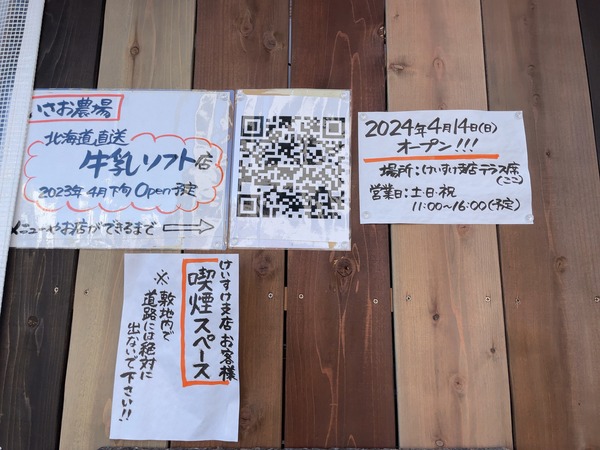 いさお農場
北海道直送
牛乳ソフト店
2023年4月下旬Open予定
メニューやお店ができるまで
2024年4月14日(日)
オープン!!!
場所:けいすけ支店テラス席
(ここ)
営業日:土・日・祝
11:00~16:00(予定)
けいすけ支店お客様
喫煙スペース
※敷地内で
道路には絶対に
出ないで下さい!!